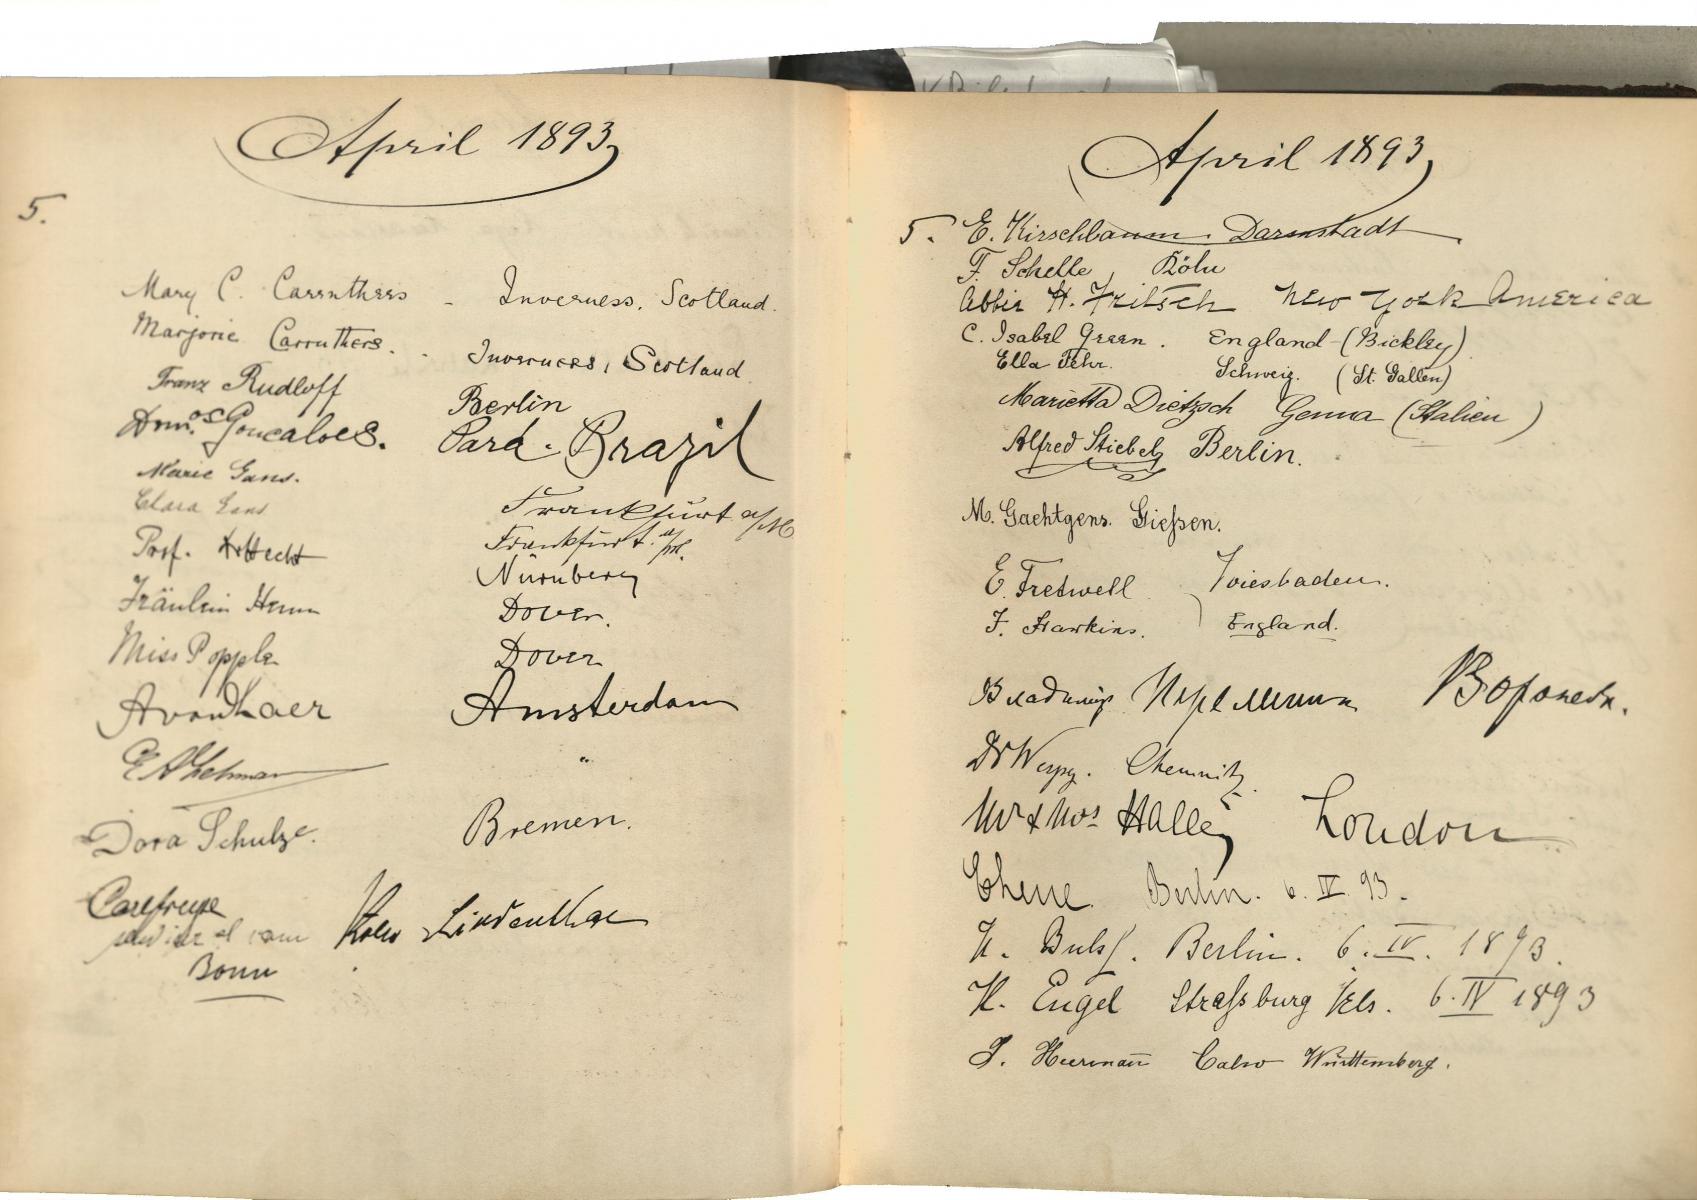 April 1893
5.
Mary C. Carruthers - Inverness, Scotland.
Marjorie Carruthers. - Inverness, Scotland
Franz Rudloff Berlin
Gonçalves. Pará - Brazil
Marie Gans. Frankfurt a/M
Clara Gans Frankfurt a/M.
Prof. Nürnberg
Fräulein Dover.
Miss Popple Dover
Amsterdam
"
Dora Schulze. Bremen.
Köln Lindenthal
Bonn
April 1893
5. E. Kirschbaum. Darmstadt
F. Schelle, Köln
Abbie H. Fritsch New York America
C. Isabel Green. England - (Bickley)
Ella Fehr. Schweiz. (St. Gallen)
Marietta Dietzsch Genua (Italien)
Alfred Stiebel, Berlin.
M. Gaehtgens. Gießen.
E. Fretwell Wiesbaden.
F. Hawkins. England.
Владимiръ Воронежъ.
Dr Chemnitz.
Mr & Mrs Halley London
Berlin. 6. IV. 93.
K. Berlin. 6. IV. 1893.
K. Engel Straßburg Els. 6. IV 1893
Calw Württemberg.